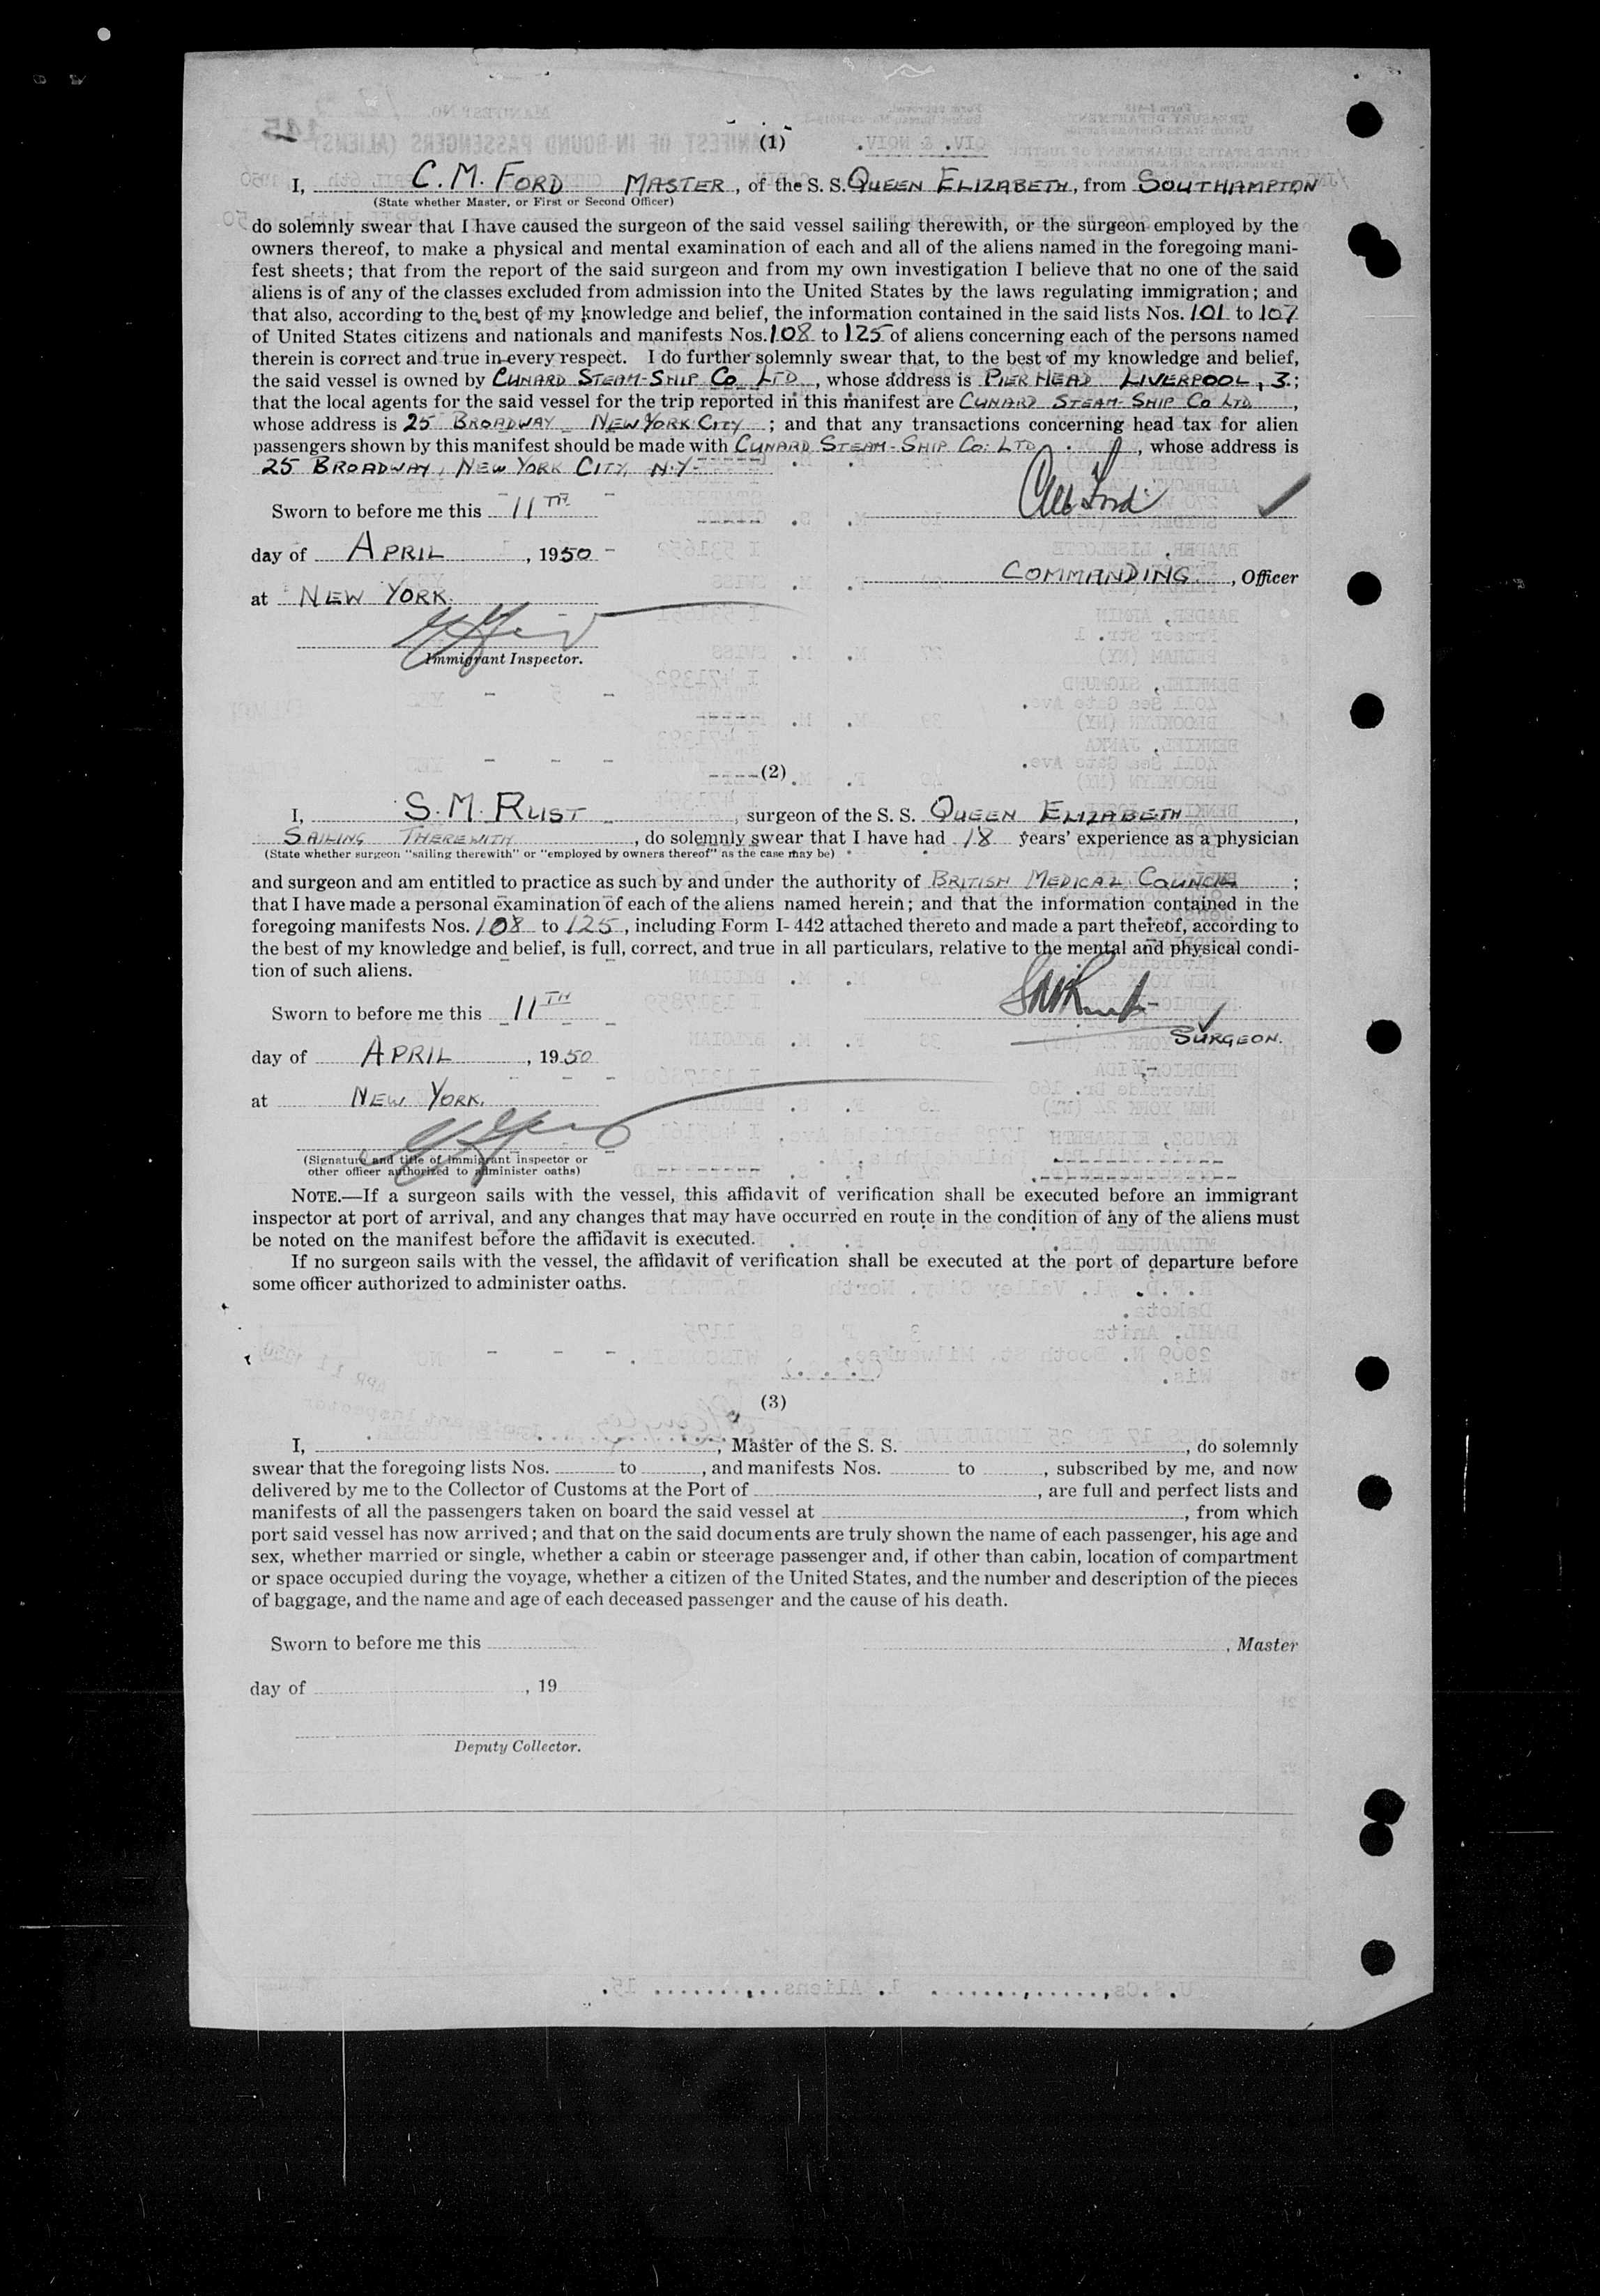 (1)
I, C. M. FORD MASTER, of the S. S. QUEEN ELIZABETH, from SOUTHAMPTON
(State whether Master, or First or Second Officer)
do solemnly swear that I have caused the surgeon of the said vessel sailing therewith, or the surgeon employed by the
owners thereof, to make a physical and mental examination of each and all of the aliens named in the foregoing mani-
fest sheets; that from the report of the said surgeon and from my own investigation I believe that no one of the said
aliens is of any of the classes excluded from admission into the United States by the laws regulating immigration; and
that also, according to the best of my knowledge and belief, the information contained in the said lists Nos. 101 to 107
of United States citizens and nationals and manifests Nos. 108 to 125 of aliens concerning each of the persons named
therein is correct and true in every respect. I do further solemnly swear that, to the best of my knowledge and belief,
the said vessel is owned by CUNARD STEAM-SHIP CO LTD, whose address is PIER HEAD LIVERPOOL, 3.;
that the local agents for the said vessel for the trip reported in this manifest are CUNARD STEAM-SHIP CO LTD,
whose address is 25 BROADWAY NEW YORK CITY; and that any transactions concerning head tax for alien
passengers shown by this manifest should be made with CUNARD STEAM-SHIP CO: LTD, whose address is
25 BROADWAY, NEW YORK CITY, N.Y.
Sworn to before me this 11TH
day of APRIL, 1950
COMMANDING, Officer
at NEW YORK.
Immigrant Inspector.
(2)
I, S. M. RUST, surgeon of the S. S. QUEEN ELIZABETH,
SAILING THEREWITH, do solemnly swear that I have had 18 years' experience as a physician
(State whether surgeon "sailing therewith" or "employed by owners thereof" as the case may be)
and surgeon and am entitled to practice as such by and under the authority of BRITISH MEDICAL COUNCIL;
that I have made a personal examination of each of the aliens named herein; and that the information contained in the
foregoing manifests Nos. 108 to 125, including Form I-442 attached thereto and made a part thereof, according to
the best of my knowledge and belief, is full, correct, and true in all particulars, relative to the mental and physical condi-
tion of such aliens.
Sworn to before me this 11TH
SURGEON.
day of APRIL, 1950
at NEW YORK.
(Signature and title of immigrant inspector or
other officer authorized to administer oaths)
NOTE.—If a surgeon sails with the vessel, this affidavit of verification shall be executed before an immigrant
inspector at port of arrival, and any changes that may have occurred en route in the condition of any of the aliens must
be noted on the manifest before the affidavit is executed.
If no surgeon sails with the vessel, the affidavit of verification shall be executed at the port of departure before
some officer authorized to administer oaths.
(3)
I, , Master of the S. S. , do solemnly
swear that the foregoing lists Nos. to , and manifests Nos. to , subscribed by me, and now
delivered by me to the Collector of Customs at the Port of , are full and perfect lists and
manifests of all the passengers taken on board the said vessel at , from which
port said vessel has now arrived; and that on the said documents are truly shown the name of each passenger, his age and
sex, whether married or single, whether a cabin or steerage passenger and, if other than cabin, location of compartment
or space occupied during the voyage, whether a citizen of the United States, and the number and description of the pieces
of baggage, and the name and age of each deceased passenger and the cause of his death.
Sworn to before me this
, Master
day of , 19
Deputy Collector.